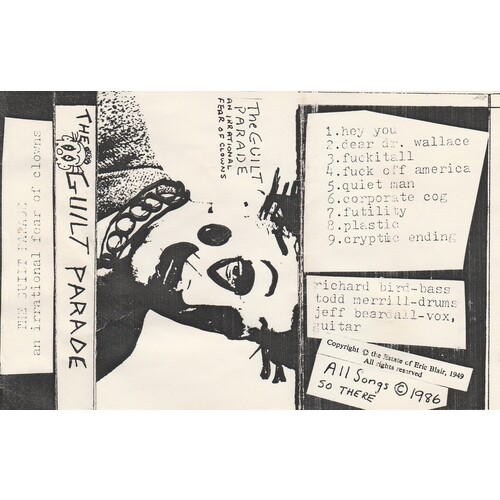 THE GUILT PARADE
an irrational fear of clowns
THE GUILT PARADE
The GUILT
PARADE
AN IRRATIONAL
FEAR OF CLOWNS
1.hey you
2.dear dr. wallace
3.fuckitall
4.fuck off america
5.quiet man
6.corporate cog
7.futility
8.plastic
9.cryptic ending
richard bird-bass
todd merrill-drums
jeff beardall-vox,
guitar
Copyright © the Estate of Eric Blair, 1949
All rights reserved
All Songs © 1986
SO THERE